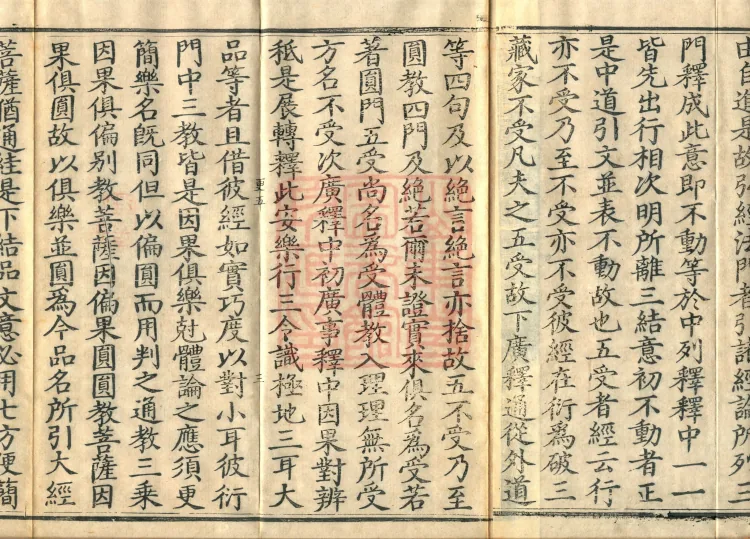 由自進是故引經法門者引諸經論所列三
門釋成此意即不動等於中列釋釋中一一
皆先出行相次明所離三結意初不動者正
是中道引文並表不動故也五受者經云行
亦不受乃至不受亦不受彼經在衍為破三
藏家不受凡夫之五受故下廣釋通從外道
等四句及以絶言絶言亦捨故五不受乃至
圓教四門及絶若爾未證實來俱名為受若
著圓門五受尚名為受體教入理理無所受
方名不受次廣釋中初廣事釋中因果對辨
秖是展轉釋此安樂行三令識極地三耳大
品等者且借彼經如實巧度以對小耳彼衍
門中三教皆是因果俱樂尅體論之應須更
簡樂名旣同但以偏圓而用判之通教三乗
因果俱偏別教菩薩因偏果圓圓教菩薩因
果俱圓故以俱樂並圓為今品名所引大經
菩薩酒通經是下結品文意必用七方便簡
更五
三